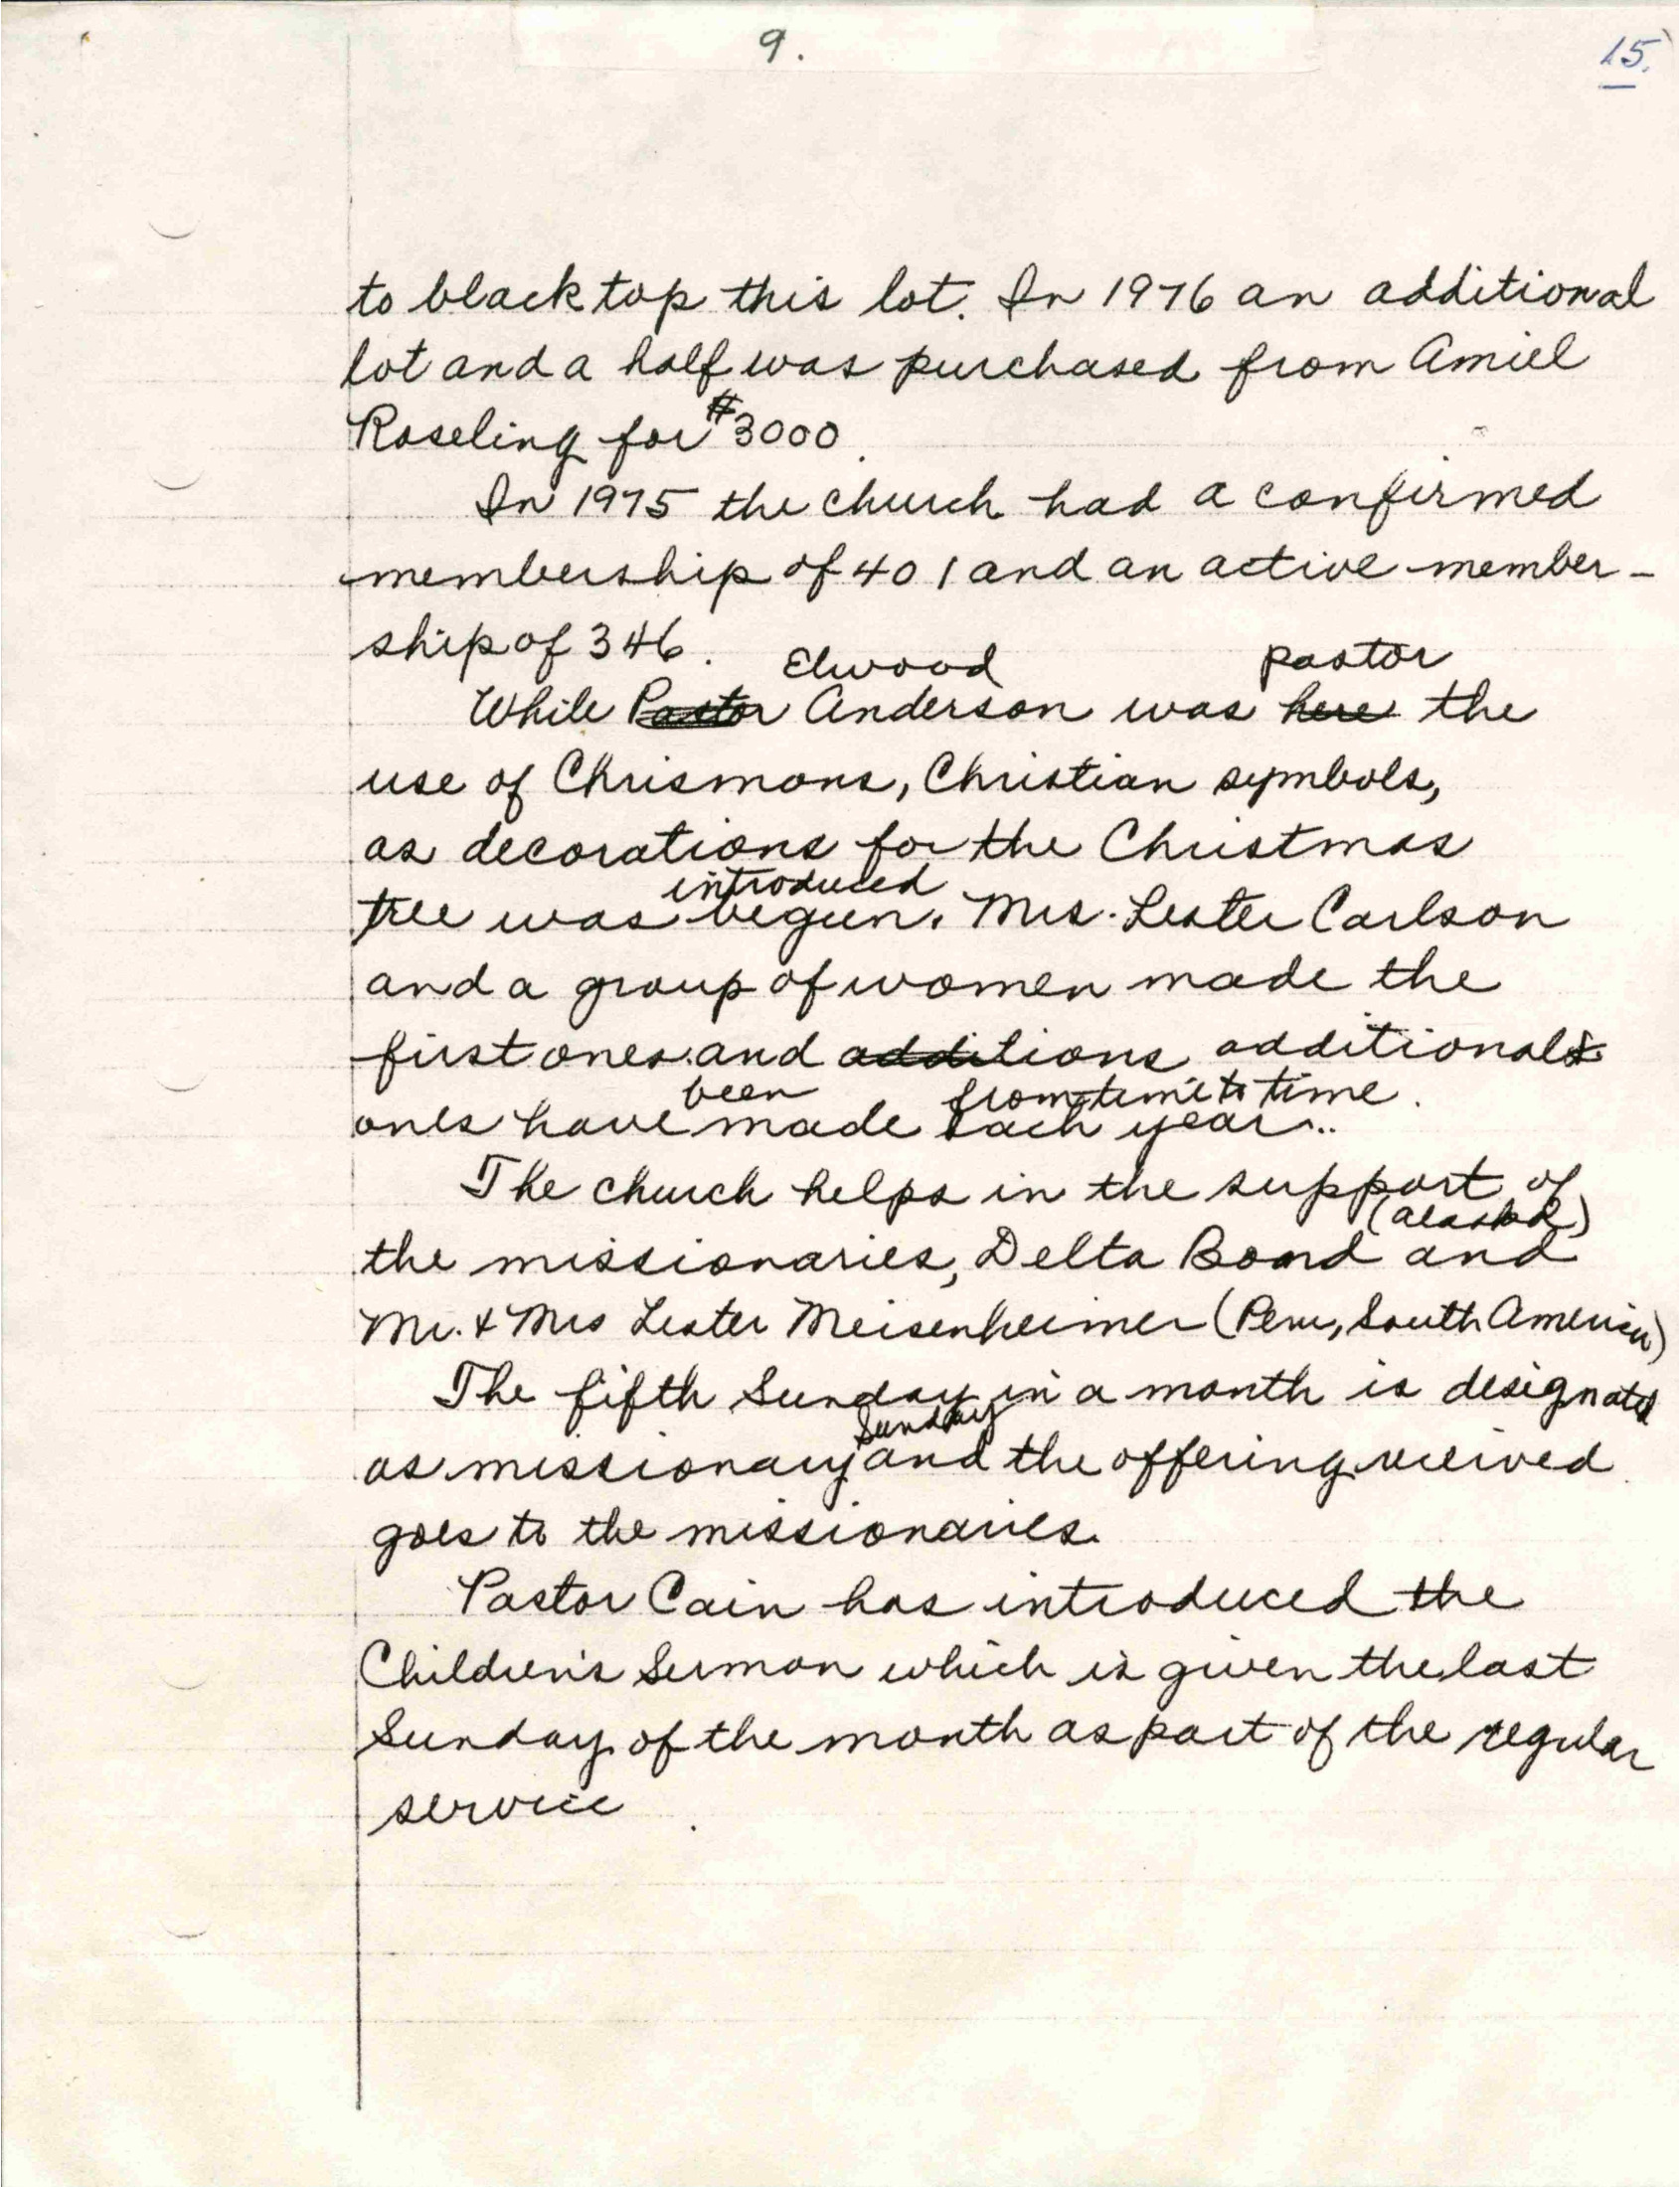 9.
15.
to black top this lot. In 1976 an additional
lot and a half was purchased from Amiel
Roseling for $3000.
In 1975 the church had a confirmed
membership of 401 and an active member-
ship of 346.
Elwood pastor
While Pastor Anderson was here the
use of Chrismons, Christian symbols,
as decorations for the Christmas
introduced
tree was begun. Mrs. Lester Carlson
and a group of women made the
first ones and additions additional
been from time to time.
ones have made each year..
The church helps in the support of
(Alaska)
the missionaries, Delta Bond and
Mr. & Mrs Lester Meisenheimer (Peru, South America)
The fifth Sunday in a month is designated
Sunday
as missionary and the offering received
goes to the missionaries.
Pastor Cain has introduced the
Children's Sermon which is given the last
Sunday of the month as part of the regular
service.